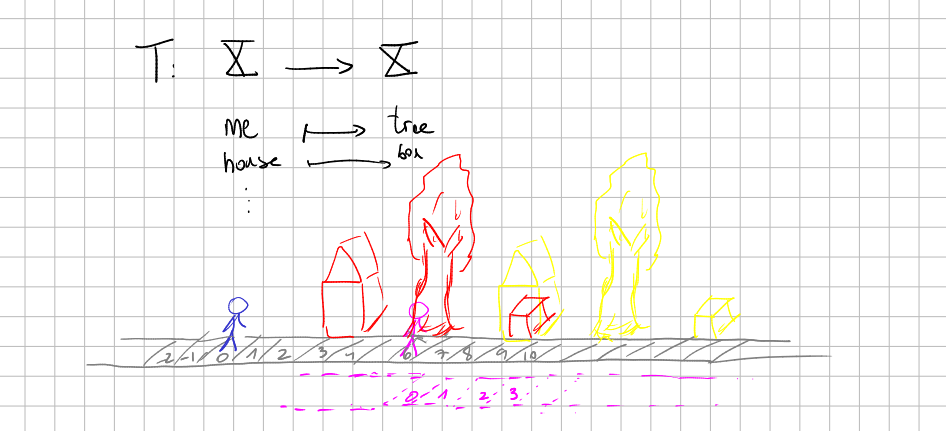 T: X → X
me ↦ tree
house ↦ box
⋮
2 -1 0 1 2 3 4 6 7 8 9 10
0 1 2 3